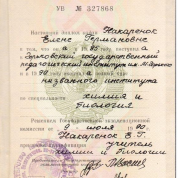 № 327868
Настоящий диплом выдан Макаренок
Елене Германовне
в том, что она в 1985 году поступил а
в Орловский государственный
педагогический институт
и в 1990 году окончил а
названного института
по специальности
химия и
биология
Решением Государственной экзаменационной
комиссии от июля 1990 г.
Макаренок Е. Г.
учитель
химии и биологии